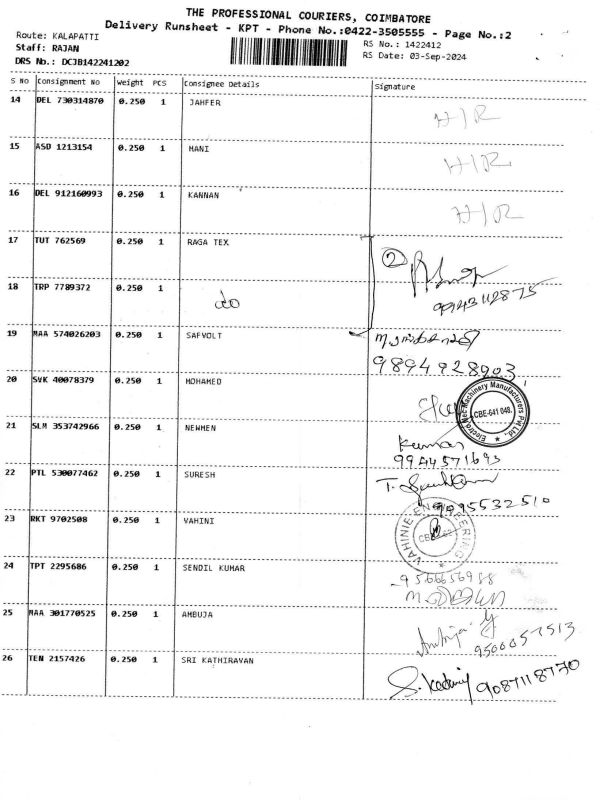 THE PROFESSIONAL COURIERS, COIMBATORE
Delivery Runsheet - KPT - Phone No.:0422-3505555 - Page No.:2
Route: KALAPATTI
RS No.: 1422412
Staff: RAJAN
RS Date: 03-Sep-2024
DRS No.: DCJB142241202
S No Consignment No Weight PCS Consignee Details Signature
14 DEL 730314870 0.250 1 JAHFER H/R
15 ASD 1213154 0.250 1 HANI H/R
16 DEL 912160993 0.250 1 KANNAN H/R
17 TUT 762569 0.250 1 RAGA TEX 2
18 TRP 7789372 0.250 1 do 9943112875
19 MAA 574026203 0.250 1 SAFVOLT
9894928903
20 SVK 40078379 0.250 1 MOHAMED
Electro Mec Machinery Manufacturers Pvt Ltd. CBE-641 048.
21 SLM 353742966 0.250 1 NEWMEN Kumar
9944571693
22 PTL 530077462 0.250 1 SURESH T.
9995532510
23 RKT 9702508 0.250 1 VAHINI
VAHINIE ENGINEERING
24 TPT 2295686 0.250 1 SENDIL KUMAR 9566656988
25 MAA 301770525 0.250 1 AMBUJA Ambuja
9500057513
26 TEN 2157426 0.250 1 SRI KATHIRAVAN 9087118770